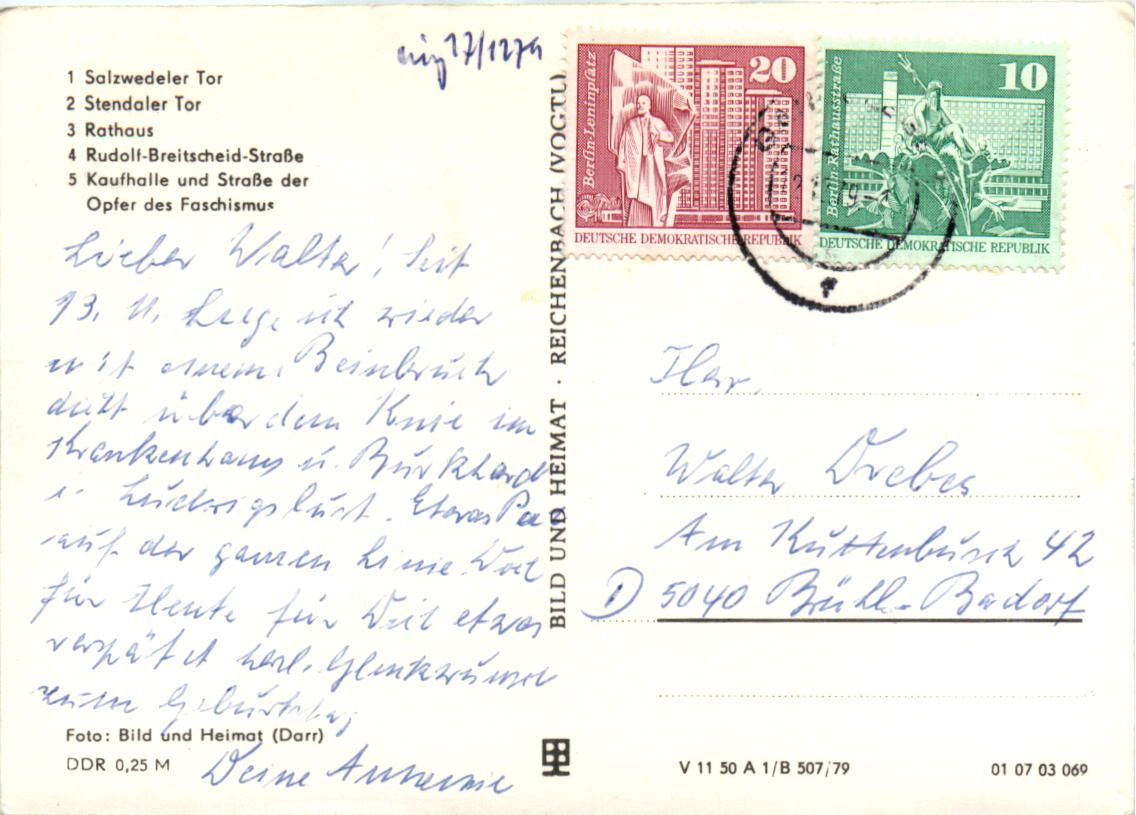 1 Salzwedeler Tor
2 Stendaler Tor
3 Rathaus
4 Rudolf-Breitscheid-Straße
5 Kaufhalle und Straße der
Opfer des Faschismus
Lieber Walter! Seit
13. 11. liege ich wieder
mit einem Beinbruch
dicht über dem Knie im
Krankenhaus u. Burkhard
i. Ludwigslust. Etwas
auf der ganzen Linie.
für Heute für Dich etwas
verspätet herl. Glückwunsch
zum Geburtstag
Deine Annemie
Foto: Bild und Heimat (Darr)
DDR 0,25 M
BILD UND HEIMAT · REICHENBACH (VOGTL)
27/12 79
Berlin-Leninplatz
20
DEUTSCHE DEMOKRATISCHE REPUBLIK
Berlin-Rathausstraße
10
DEUTSCHE DEMOKRATISCHE REPUBLIK
Herr
Walter Drebes
Am Kuttenbusch 42
D 5040 Brühl-Badorf
V 11 50 A 1/B 507/79
01 07 03 069